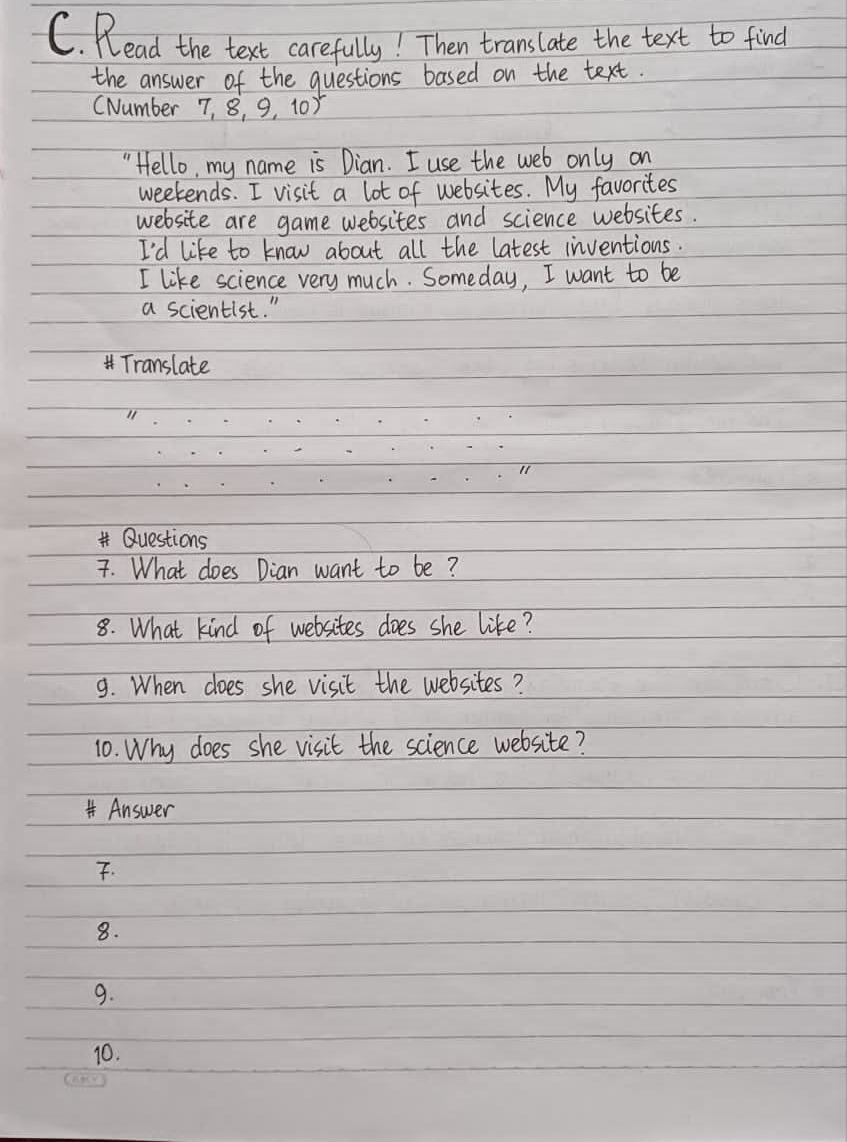 C. Read the text carefully! Then translate the text to find
the answer of the questions based on the text.
(Number 7, 8, 9, 10)
"Hello, my name is Dian. I use the web only on
weekends. I visit a lot of websites. My favorites
website are game websites and science websites.
I'd like to know about all the latest inventions.
I like science very much. Someday, I want to be
a scientist."
# Translate
" . . . . . . . . .
. . . . . . . . .
. . . . . . . . . "
# Questions
7. What does Dian want to be?
8. What kind of websites does she like?
9. When does she visit the websites?
10. Why does she visit the science website?
# Answer
7.
8.
9.
10.